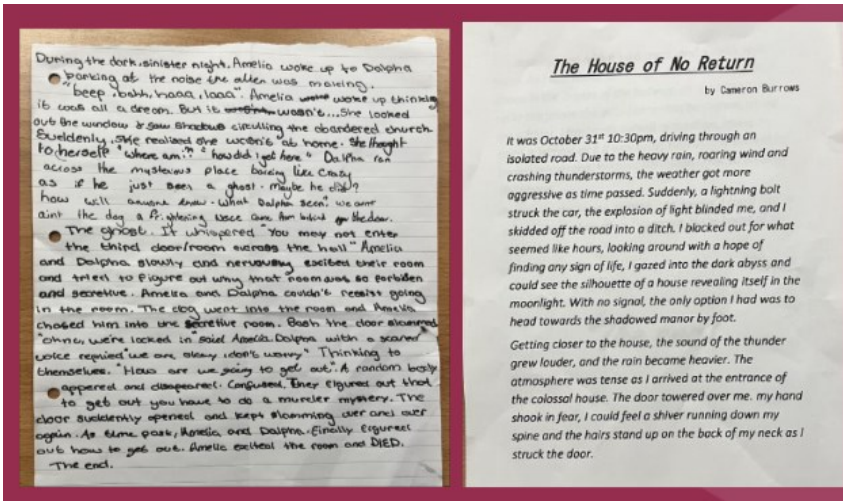 During the dark, sinister night. Amelia woke up to Dalpha
barking at the noise the alien was making.
"beep, bahh, haaa, laaa". Amelia woke up thinking
it was all a dream. But it wasn't... She looked
out the window & saw shadows circulling the abandered church.
Sueldenly, she realised she wasn't at home. She thought
to herself "where am i?" "how did i get here" Dalpha ran
across the mysterious place barking like crazy
as if he just seen a ghost. maybe he did?
how will anyone know. What Dalpha seen? we
aint the dog a frightening voice came from behind the door.
The ghost. It whispered "You may not enter
the third door/room across the hall" Amelia
and Dalpha slowly and nervously excited their room
and tried to figure out why that room was so forbiden
and secretive. Amelia and Dalpha couldn't resist going
in the room. The dog went into the room and Amelia
chased him into the secretive room. Bash the door slammed
"ohno, we're locked in" said Amelia. Dalpha with a scared
voice repnied "we are okay, don't worry" Thinking to
themselves. "How are we going to get out". A random body
appered and disapeared. Confused, they figured out that
to get out you have to do a murder mystery. The
door suddently opened and kept slamming over and over
again. As time past, Amelia and Dalpha. Finally figured
out how to get out. Amelia exited the room and DIED.
The end.
The House of No Return
by Cameron Burrows
It was October 31st 10:30pm, driving through an
isolated road. Due to the heavy rain, roaring wind and
crashing thunderstorms, the weather got more
aggressive as time passed. Suddenly, a lightning bolt
struck the car, the explosion of light blinded me, and I
skidded off the road into a ditch. I blacked out for what
seemed like hours, looking around with a hope of
finding any sign of life, I gazed into the dark abyss and
could see the silhouette of a house revealing itself in the
moonlight. With no signal, the only option I had was to
head towards the shadowed manor by foot.
Getting closer to the house, the sound of the thunder
grew louder, and the rain became heavier. The
atmosphere was tense as I arrived at the entrance of
the colossal house. The door towered over me. my hand
shook in fear, I could feel a shiver running down my
spine and the hairs stand up on the back of my neck as I
struck the door.